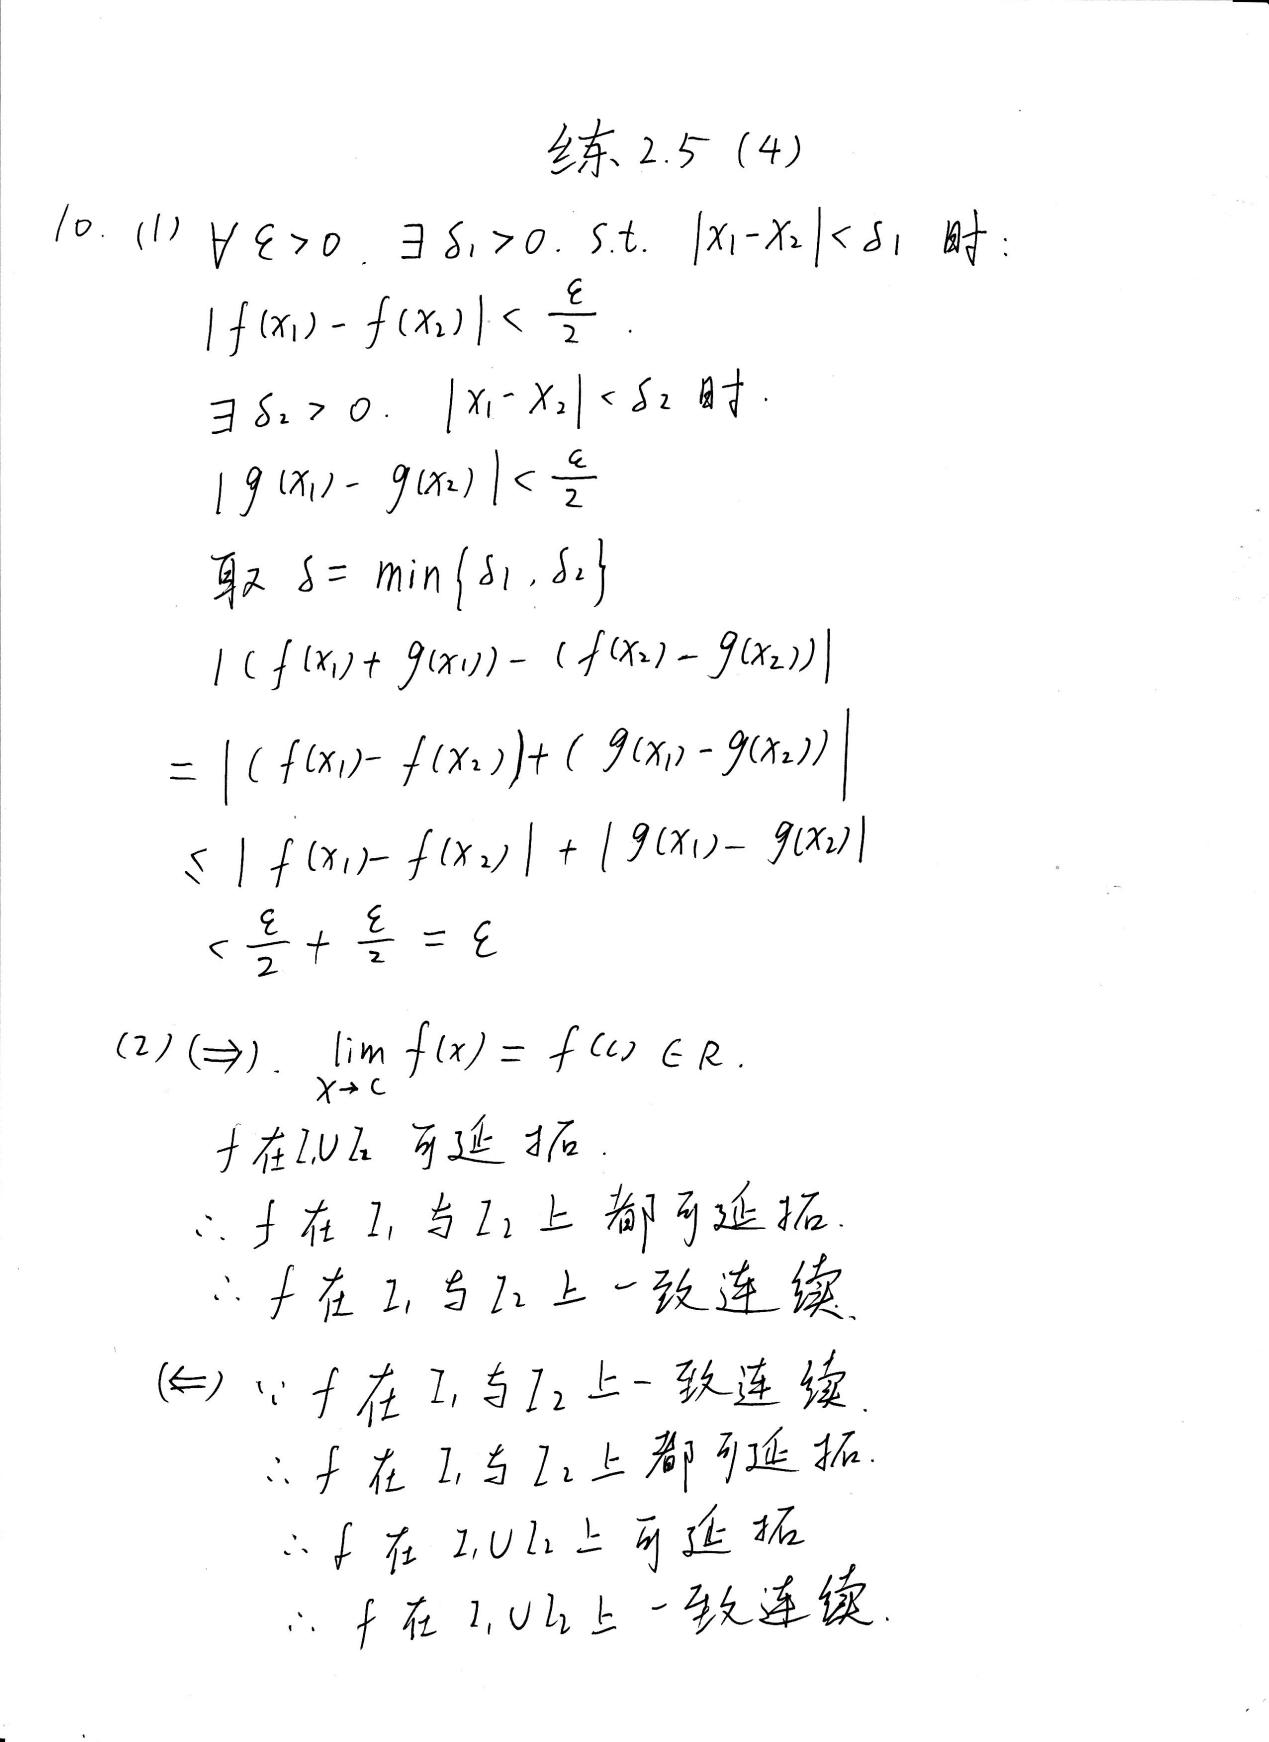 练 2.5 (4)
10. (1) ∀ ε>0. ∃ δ₁>0. s.t. |x₁-x₂|<δ₁ 时:
|f(x₁)-f(x₂)|< ε/2.
∃ δ₂>0. |x₁-x₂|<δ₂ 时.
|g(x₁)-g(x₂)|< ε/2
取 δ= min{δ₁,δ₂}
|(f(x₁)+g(x₁))-(f(x₂)-g(x₂))|
= |(f(x₁)-f(x₂))+(g(x₁)-g(x₂))|
≤ |f(x₁)-f(x₂)|+|g(x₁)-g(x₂)|
< ε/2 + ε/2 = ε
(2) (⇒). lim x→c f(x) = f(c) ∈ R.
f 在 I₁∪I₂ 可延拓.
∴ f 在 I₁ 与 I₂ 上 都可延拓.
∴ f 在 I₁ 与 I₂ 上 一致连续.
(⇐) ∵ f 在 I₁ 与 I₂ 上一致连续.
∴ f 在 I₁ 与 I₂ 上 都可延拓.
∴ f 在 I₁∪I₂ 上 可延拓
∴ f 在 I₁∪I₂ 上 一致连续.